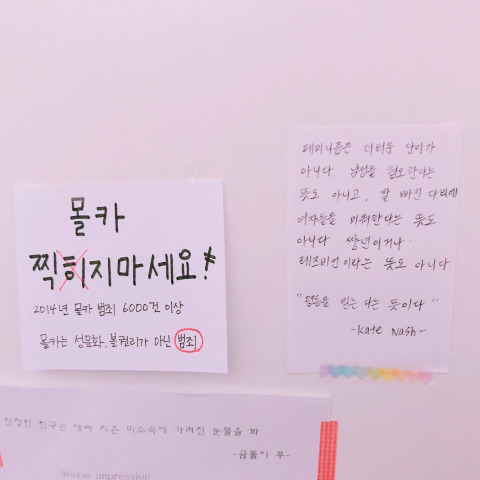 몰카
찍히지마세요!
2014년 몰카 범죄 6000건 이상
몰카는 성문화, 볼거리가 아닌 범죄
페미니즘은 더러운 단어가
아니다. 남성을 혐오한다는
뜻도 아니고, 잘 빠진 다리에
여자들을 미워한다는 뜻도
아니다 쌍년이거나
레즈비언이라는 뜻도 아니다
"평등을 믿는 다는 뜻이다"
-Kate Nash-
진정한 친구는 애써 지은 미소속에 가려진 눈물을 봐
-곰돌이 푸-
movie impression